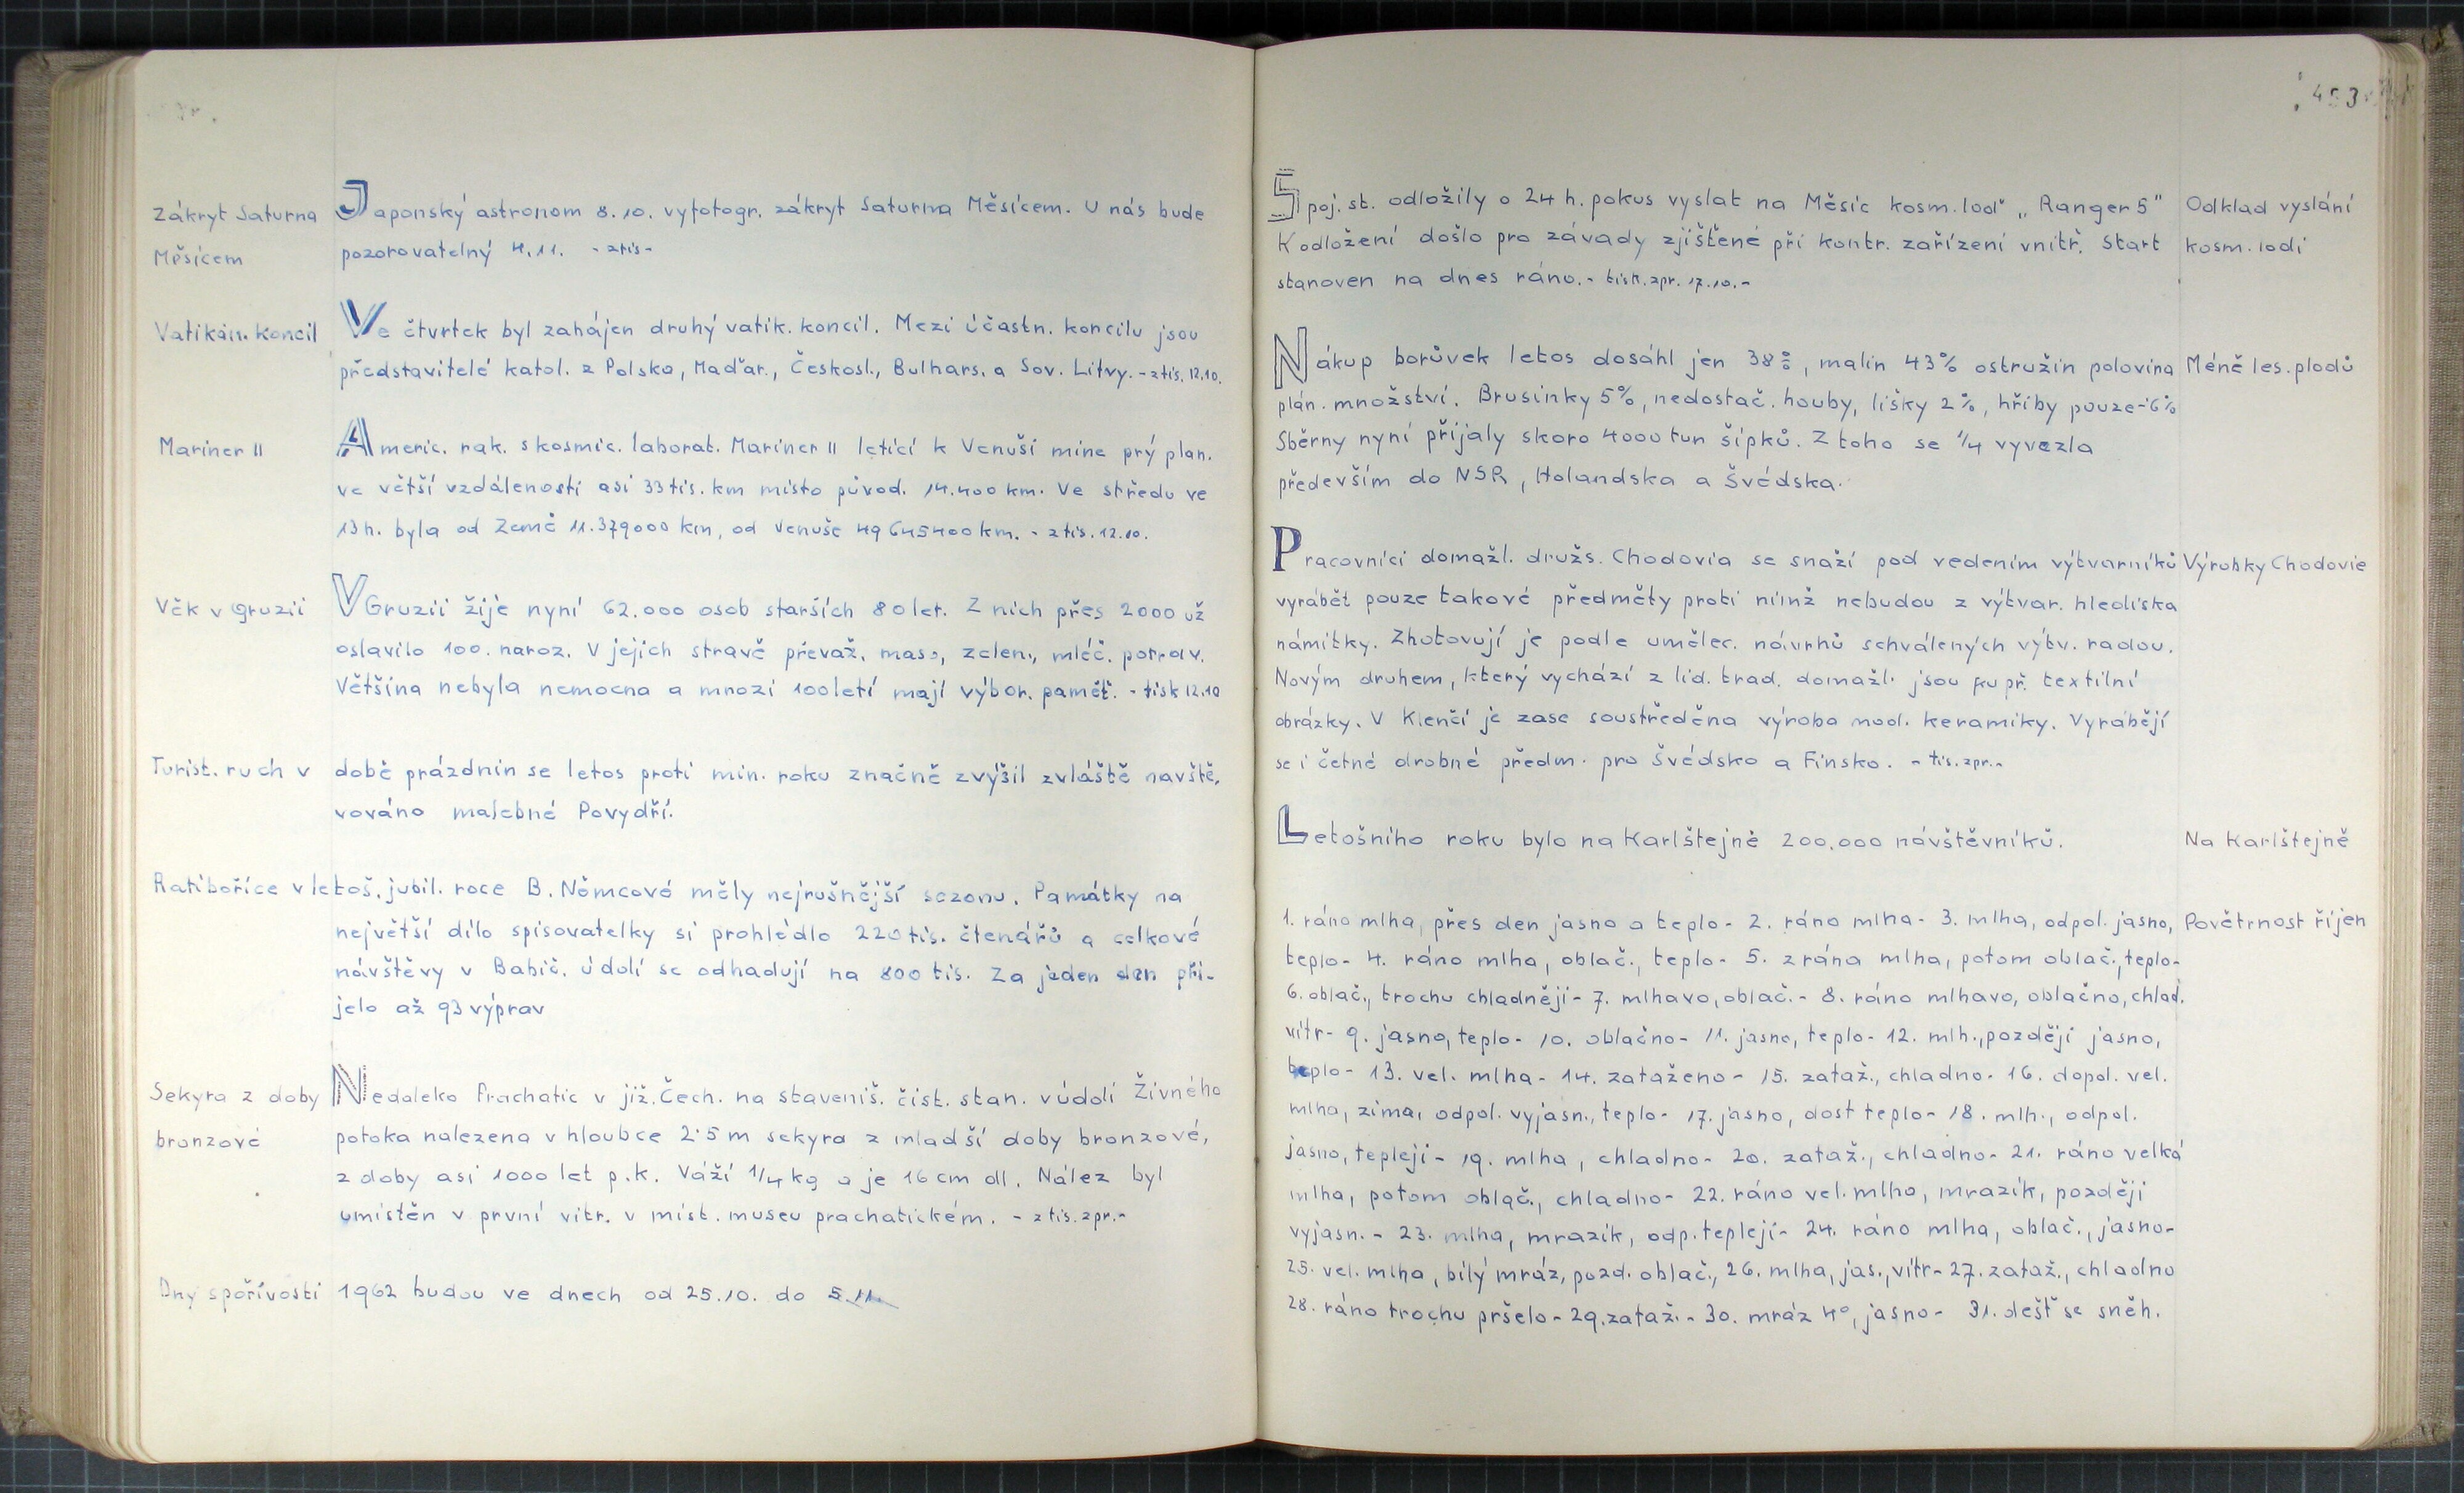 Zákryt Saturna
Měsícem
Japonský astronom 8.10. vyfotogr. zákryt Saturna Měsícem. U nás bude
pozorovatelný 4.11. - ztis-
Vatikán. koncil
Ve čtvrtek byl zahájen druhý vatik. koncil. Mezi účastn. koncilu jsou
představitelé katol. z Polska, Maďar., Českosl., Bulhars. a Sov. Litvy. - ztis. 12.10.
Mariner II
Americ. rak. s kosmic. laborat. Mariner II letící k Venuši mine prý plan.
ve větší vzdálenosti asi 33 tis. km místo původ. 14.400 km. Ve středu ve
13 h. byla od Země 11.379000 km, od Venuše 49 645400 km. - ztis. 12.10.
Věk v Gruzii
V Gruzii žije nyní 62.000 osob starších 80 let. Z nich přes 2000 už
oslavilo 100. naroz. V jejich stravě převaž. maso, zelen., mléč. potrav.
Většina nebyla nemocna a mnozí 100letí mají výbor. paměť. - tisk 12.10
Turist. ruch v době prázdnin se letos proti min. roku značně zvýšil zvláště navště,
vováno malebné Povydří.
Ratibořice v letoš. jubil. roce B. Němcové měly nejrušnější sezonu. Památky na
největší dílo spisovatelky si prohlédlo 220 tis. čtenářů a celkové
návštěvy v Babič. údolí se odhadují na 800 tis. Za jeden den při-
jelo až 93 výprav
Sekyra z doby
bronzové
Nedaleko Prachatic v již. Čech. na staveniš. čist. stan. v údolí Živného
potoka nalezena v hloubce 2·5 m sekyra z mladší doby bronzové,
z doby asi 1000 let p.k. Váží 1/4 kg a je 16 cm dl. Nález byl
umístěn v první vitr. v míst. museu prachatickém. - ztis. zpr.-
Dny spořivosti 1962 budou ve dnech od 25.10. do 5.11.
453
Spoj. st. odložily o 24 h. pokus vyslat na Měsíc kosm. loď „Ranger 5"
K odložení došlo pro závady zjištěné při kontr. zařízení vnitř. Start
stanoven na dnes ráno. - tisk. zpr. 17.10. -
Odklad vyslání
kosm. lodi
Nákup borůvek letos dosáhl jen 38%, malin 43% ostružin polovina
plán. množství. Brusinky 5%, nedostač. houby, lišky 2%, hřiby pouze 6%
Sběrny nyní přijaly skoro 4000 tun šípků. Z toho se 1/4 vyvezla
především do NSR, Holandska a Švédska.
Méně les. plodů
Pracovníci domažl. družs. Chodovia se snaží pod vedením výtvarníků
vyrábět pouze takové předměty proti nimž nebudou z výtvar. hlediska
námitky. Zhotovují je podle umělec. návrhů schválených výtv. radou.
Novým druhem, který vychází z lid. trad. domažl. jsou ku př. textilní
obrázky. V Klenčí je zase soustředěna výroba mod. keramiky. Vyrábějí
se i četné drobné předm. pro Švédsko a Finsko. - tis. zpr. -
Výrobky Chodovie
Letošního roku bylo na Karlštejně 200.000 návštěvníků.
Na Karlštejně
1. ráno mlha, přes den jasno a teplo - 2. ráno mlha - 3. mlha, odpol. jasno,
teplo - 4. ráno mlha, oblač., teplo - 5. zrána mlha, potom oblač., teplo -
6. oblač., trochu chladněji - 7. mlhavo, oblač. - 8. ráno mlhavo, oblačno, chlad.
vítr - 9. jasno, teplo - 10. oblačno - 11. jasno, teplo - 12. mlh., později jasno,
teplo - 13. vel. mlha - 14. zataženo - 15. zataž., chladno - 16. dopol. vel.
mlha, zima, odpol. vyjasn., teplo - 17. jasno, dost teplo - 18. mlh., odpol.
jasno, tepleji - 19. mlha, chladno - 20. zataž., chladno - 21. ráno velká
mlha, potom oblač., chladno - 22. ráno vel. mlha, mrazík, později
vyjasn. - 23. mlha, mrazík, odp. tepleji - 24. ráno mlha, oblač., jasno -
25. vel. mlha, bílý mráz, pozd. oblač., 26. mlha, jas., vítr - 27. zataž., chladno
28. ráno trochu pršelo - 29. zataž. - 30. mráz 4°, jasno - 31. déšť se sněh.
Povětrnost říjen